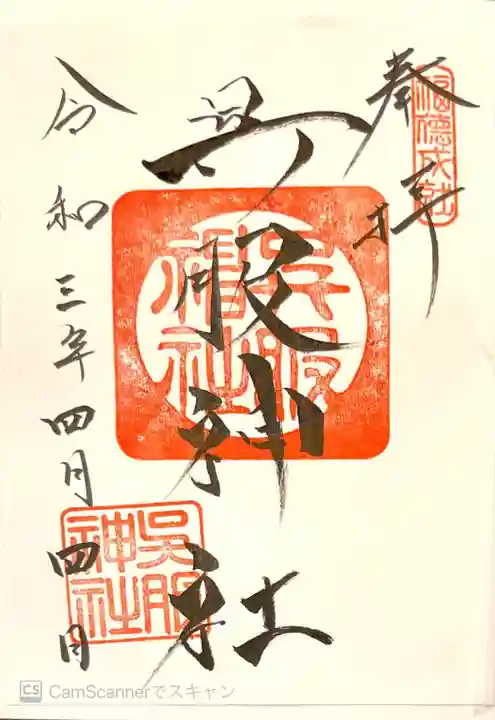 奉拝
福徳成就
呉服神社
呉服神社
令和三年四月四日
呉服神社
CS CamScannerでスキャン